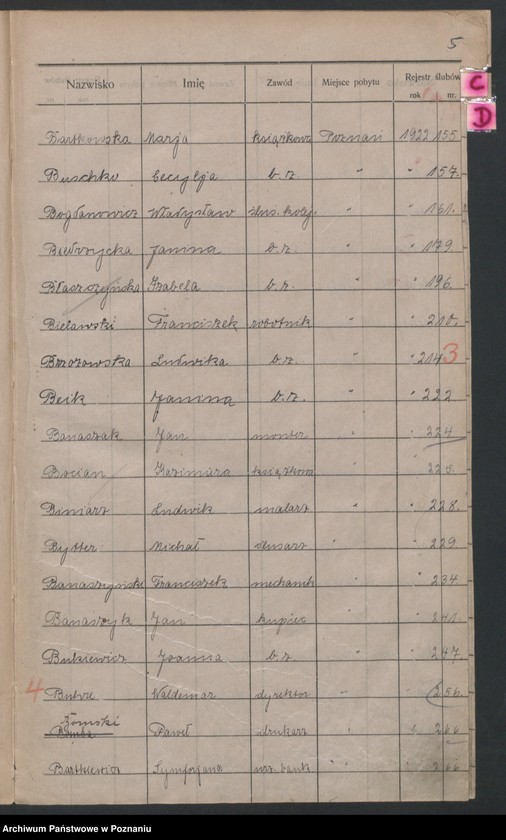 5
Nazwisko Imię Zawód Miejsce pobytu Rejestr ślubów
rok nr.
C
D
Bartkowska Marja książkowa Poznań 1922 155.
Buschke Cecylja b. z. " " 157.
Bogdanowicz Władysław " " 161.
Biedrzycka Janina b. z. " " 179.
Błaszczyńska Izabela b. z. " " 196.
Bielawski Franciszek robotnik " " 210.
Brzozowska Ludwika b. z. " " 214 3
Beik Janina b. z. " " 222
Banaszak Jan monter " " 224
Bocian Kazimiera książkowa
Biniarz Ludwik malarz " " 228.
Bytter Michał ślusarz " " 229
Banaszyński Franciszek mechanik " " 234
Banaszyk Jan kupiec " " 241.
Butkiewicz Joanna b. z. " " 247.
4 Waldemar dyrektor " " 256.
Łomski
Bomba Paweł drukarz " " 266
Bartkiewicz Symforjana urz. bank. "
Archiwum Państwowe w Poznaniu